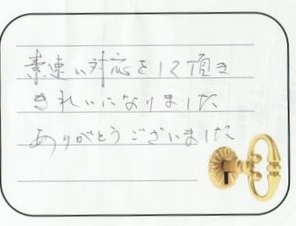 素速い対応をして頂き
きれいになりました
ありがとうございました